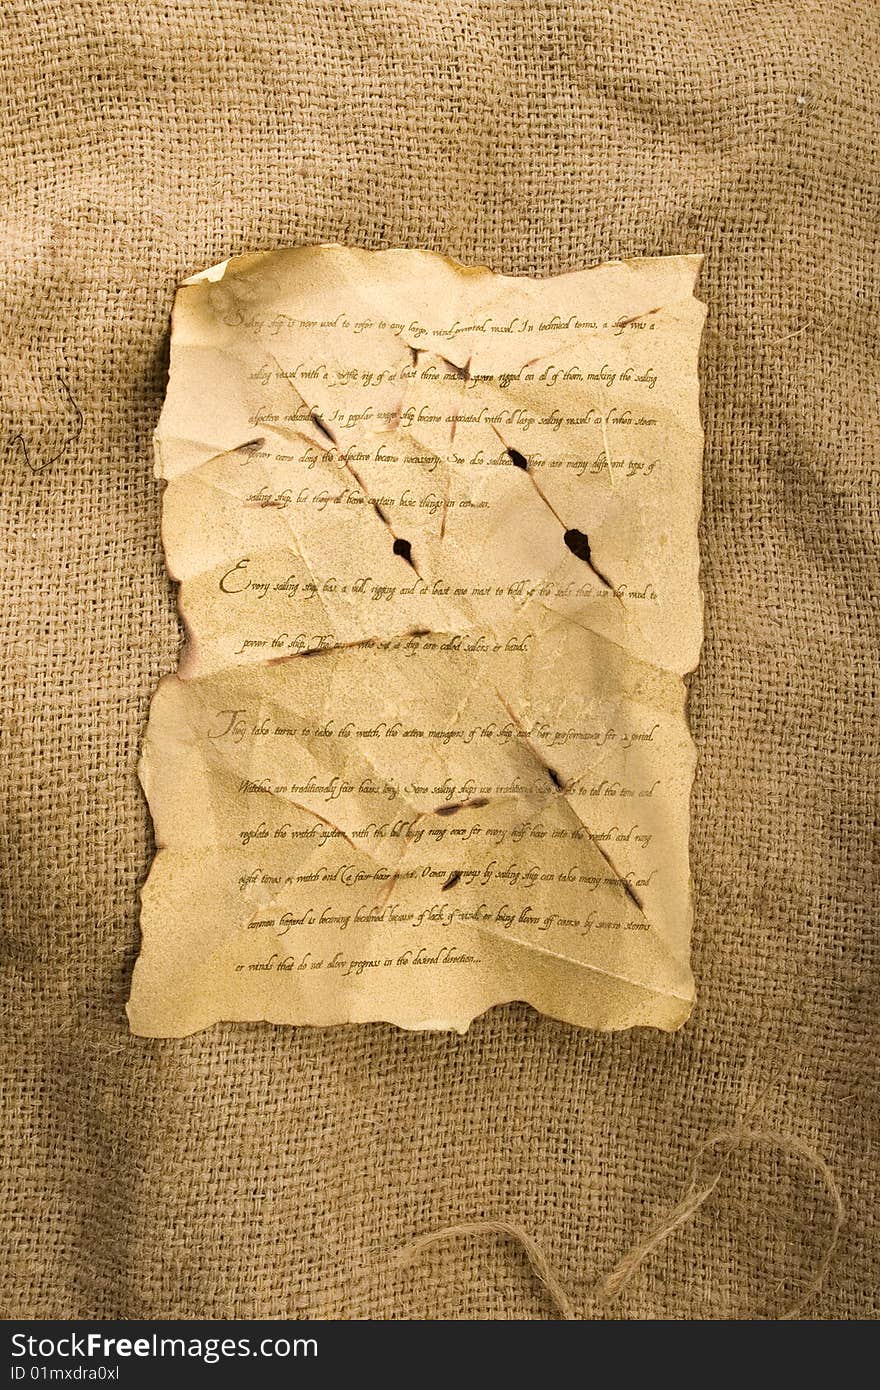 Sailing ship is now used to refer to any large, wind-powered, vessel. In technical terms, a ship was a
sailing vessel with a specific rig of at least three masts, square rigged on all of them, making the sailing
adjective redundant. In popular usage ship became associated with all large sailing vessels and when steam
power came along the adjective became necessary. See also sailboat. There are many different types of
sailing ship, but they all have certain basic things in common.
Every sailing ship has a hull, rigging and at least one mast to hold up the sails that use the wind to
power the ship. The crew who sail a ship are called sailors or hands.
They take turns to take the watch, the active managers of the ship and her performance for a period.
Watches are traditionally four hours long. Some sailing ships use traditional ship's bells to tell the time and
regulate the watch system, with the bell being rung once for every half hour into the watch and rung
eight times at watch end (a four-hour watch). Ocean journeys by sailing ship can take many months, and
common hazard is becoming becalmed because of lack of wind, or being blown off course by severe storms
or winds that do not allow progress in the desired direction...
StockFreeImages.com
ID 01mxdra0xl